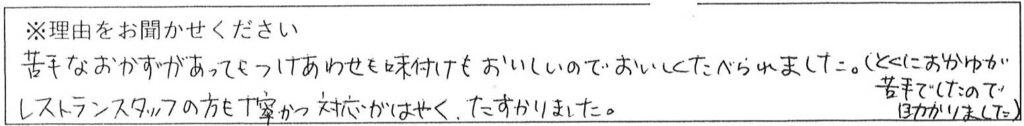 ※理由をお聞かせください
苦手なおかずがあってもつけあわせも味付けもおいしいのでおいしくたべられました。(とくにおかゆが
苦手でしたので
助かりました)
レストランスタッフの方も丁寧かつ対応がはやく、たすかりました。